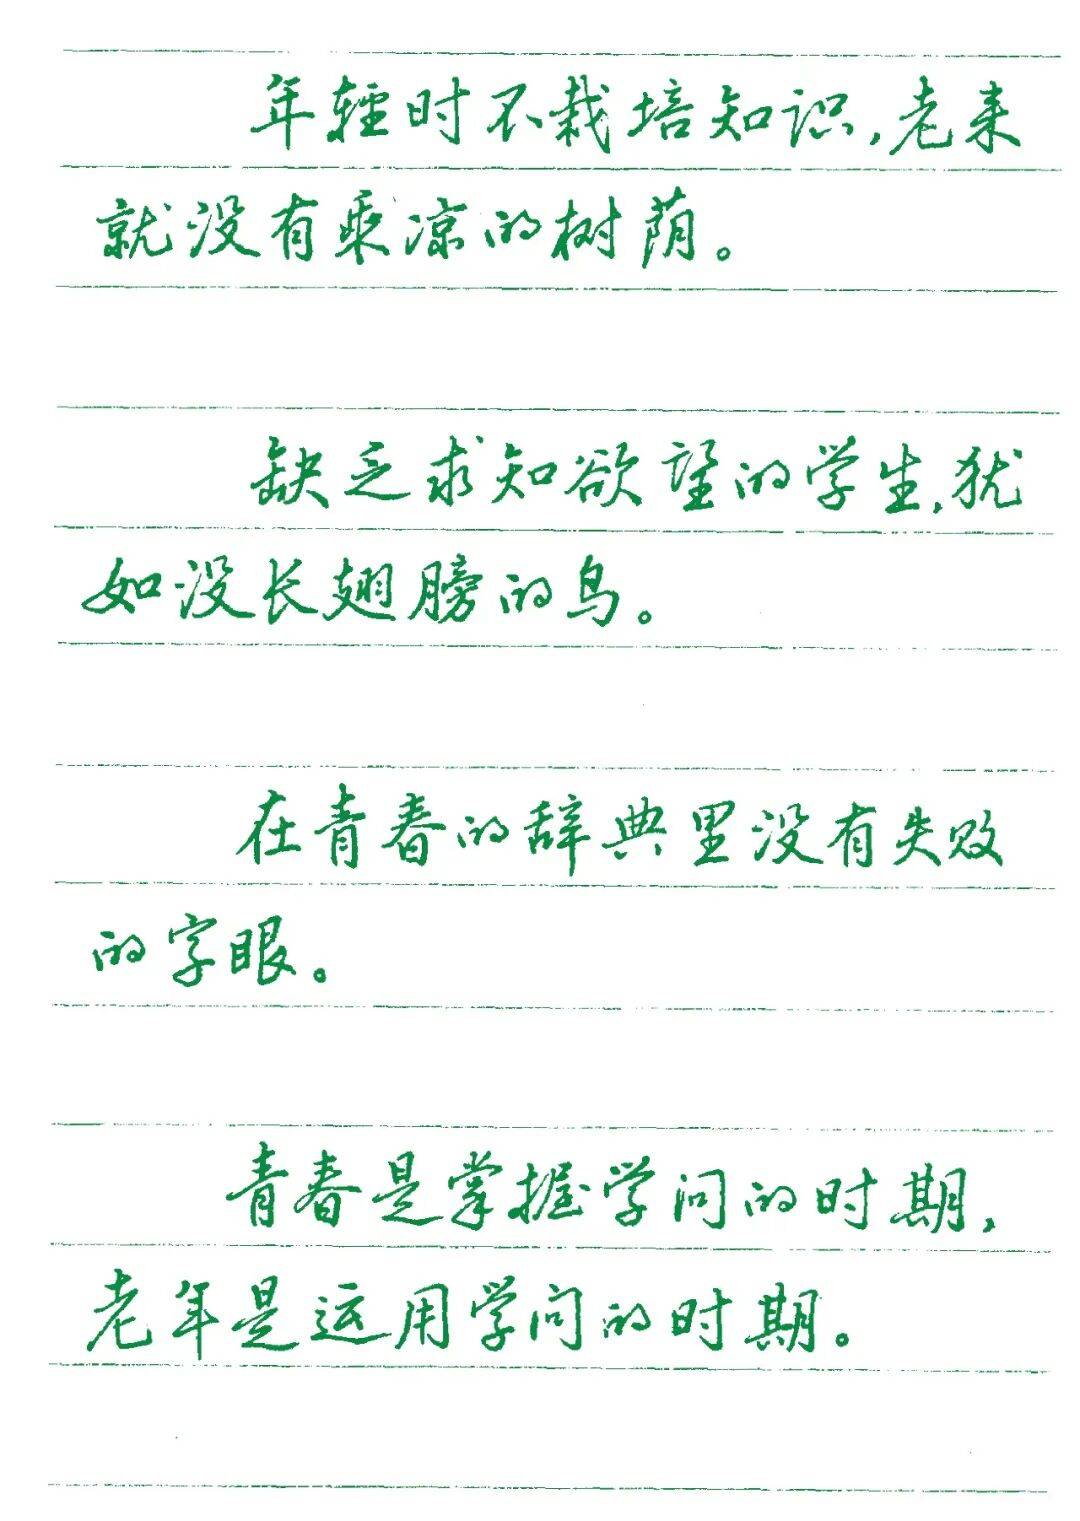 年轻时不栽培知识,老来
就没有乘凉的树荫。
缺乏求知欲望的学生,犹
如没长翅膀的鸟。
在青春的辞典里没有失败
的字眼。
青春是掌握学问的时期,
老年是运用学问的时期。